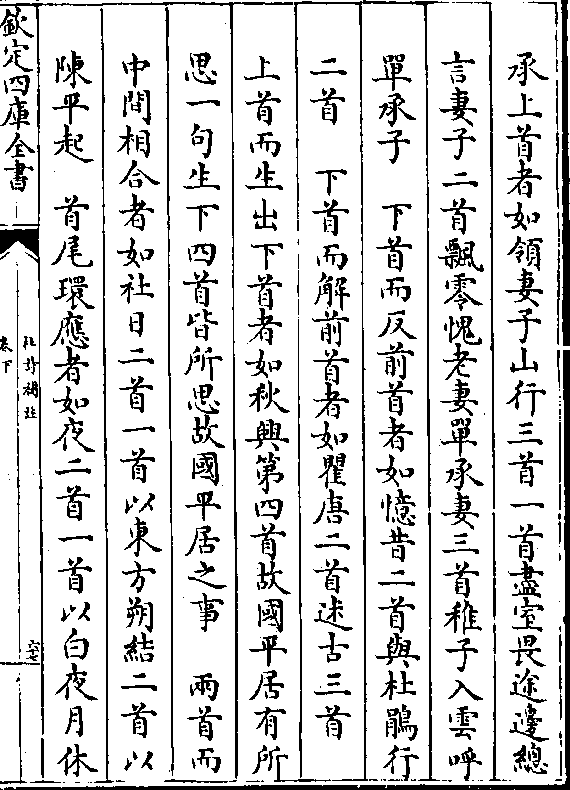 承上首者如領妻子山行三首一首盡室畏途邊總
言妻子二首飄零愧老妻單承妻三首稚子入雲呼
單承子　下首而反前首者如憶昔二首與杜鵑行
二首　下首而解前首者如瞿唐二首述古三首
上首而生出下首者如秋興第四首故國平居有所
思一句生下四首皆所思故國平居之事　兩首而
中間相合者如社日二首一首以東方朔結二首以
陳平起　首尾環應者如夜二首一首以白夜月休
欽定四庫全書
杜詩攟
卷下